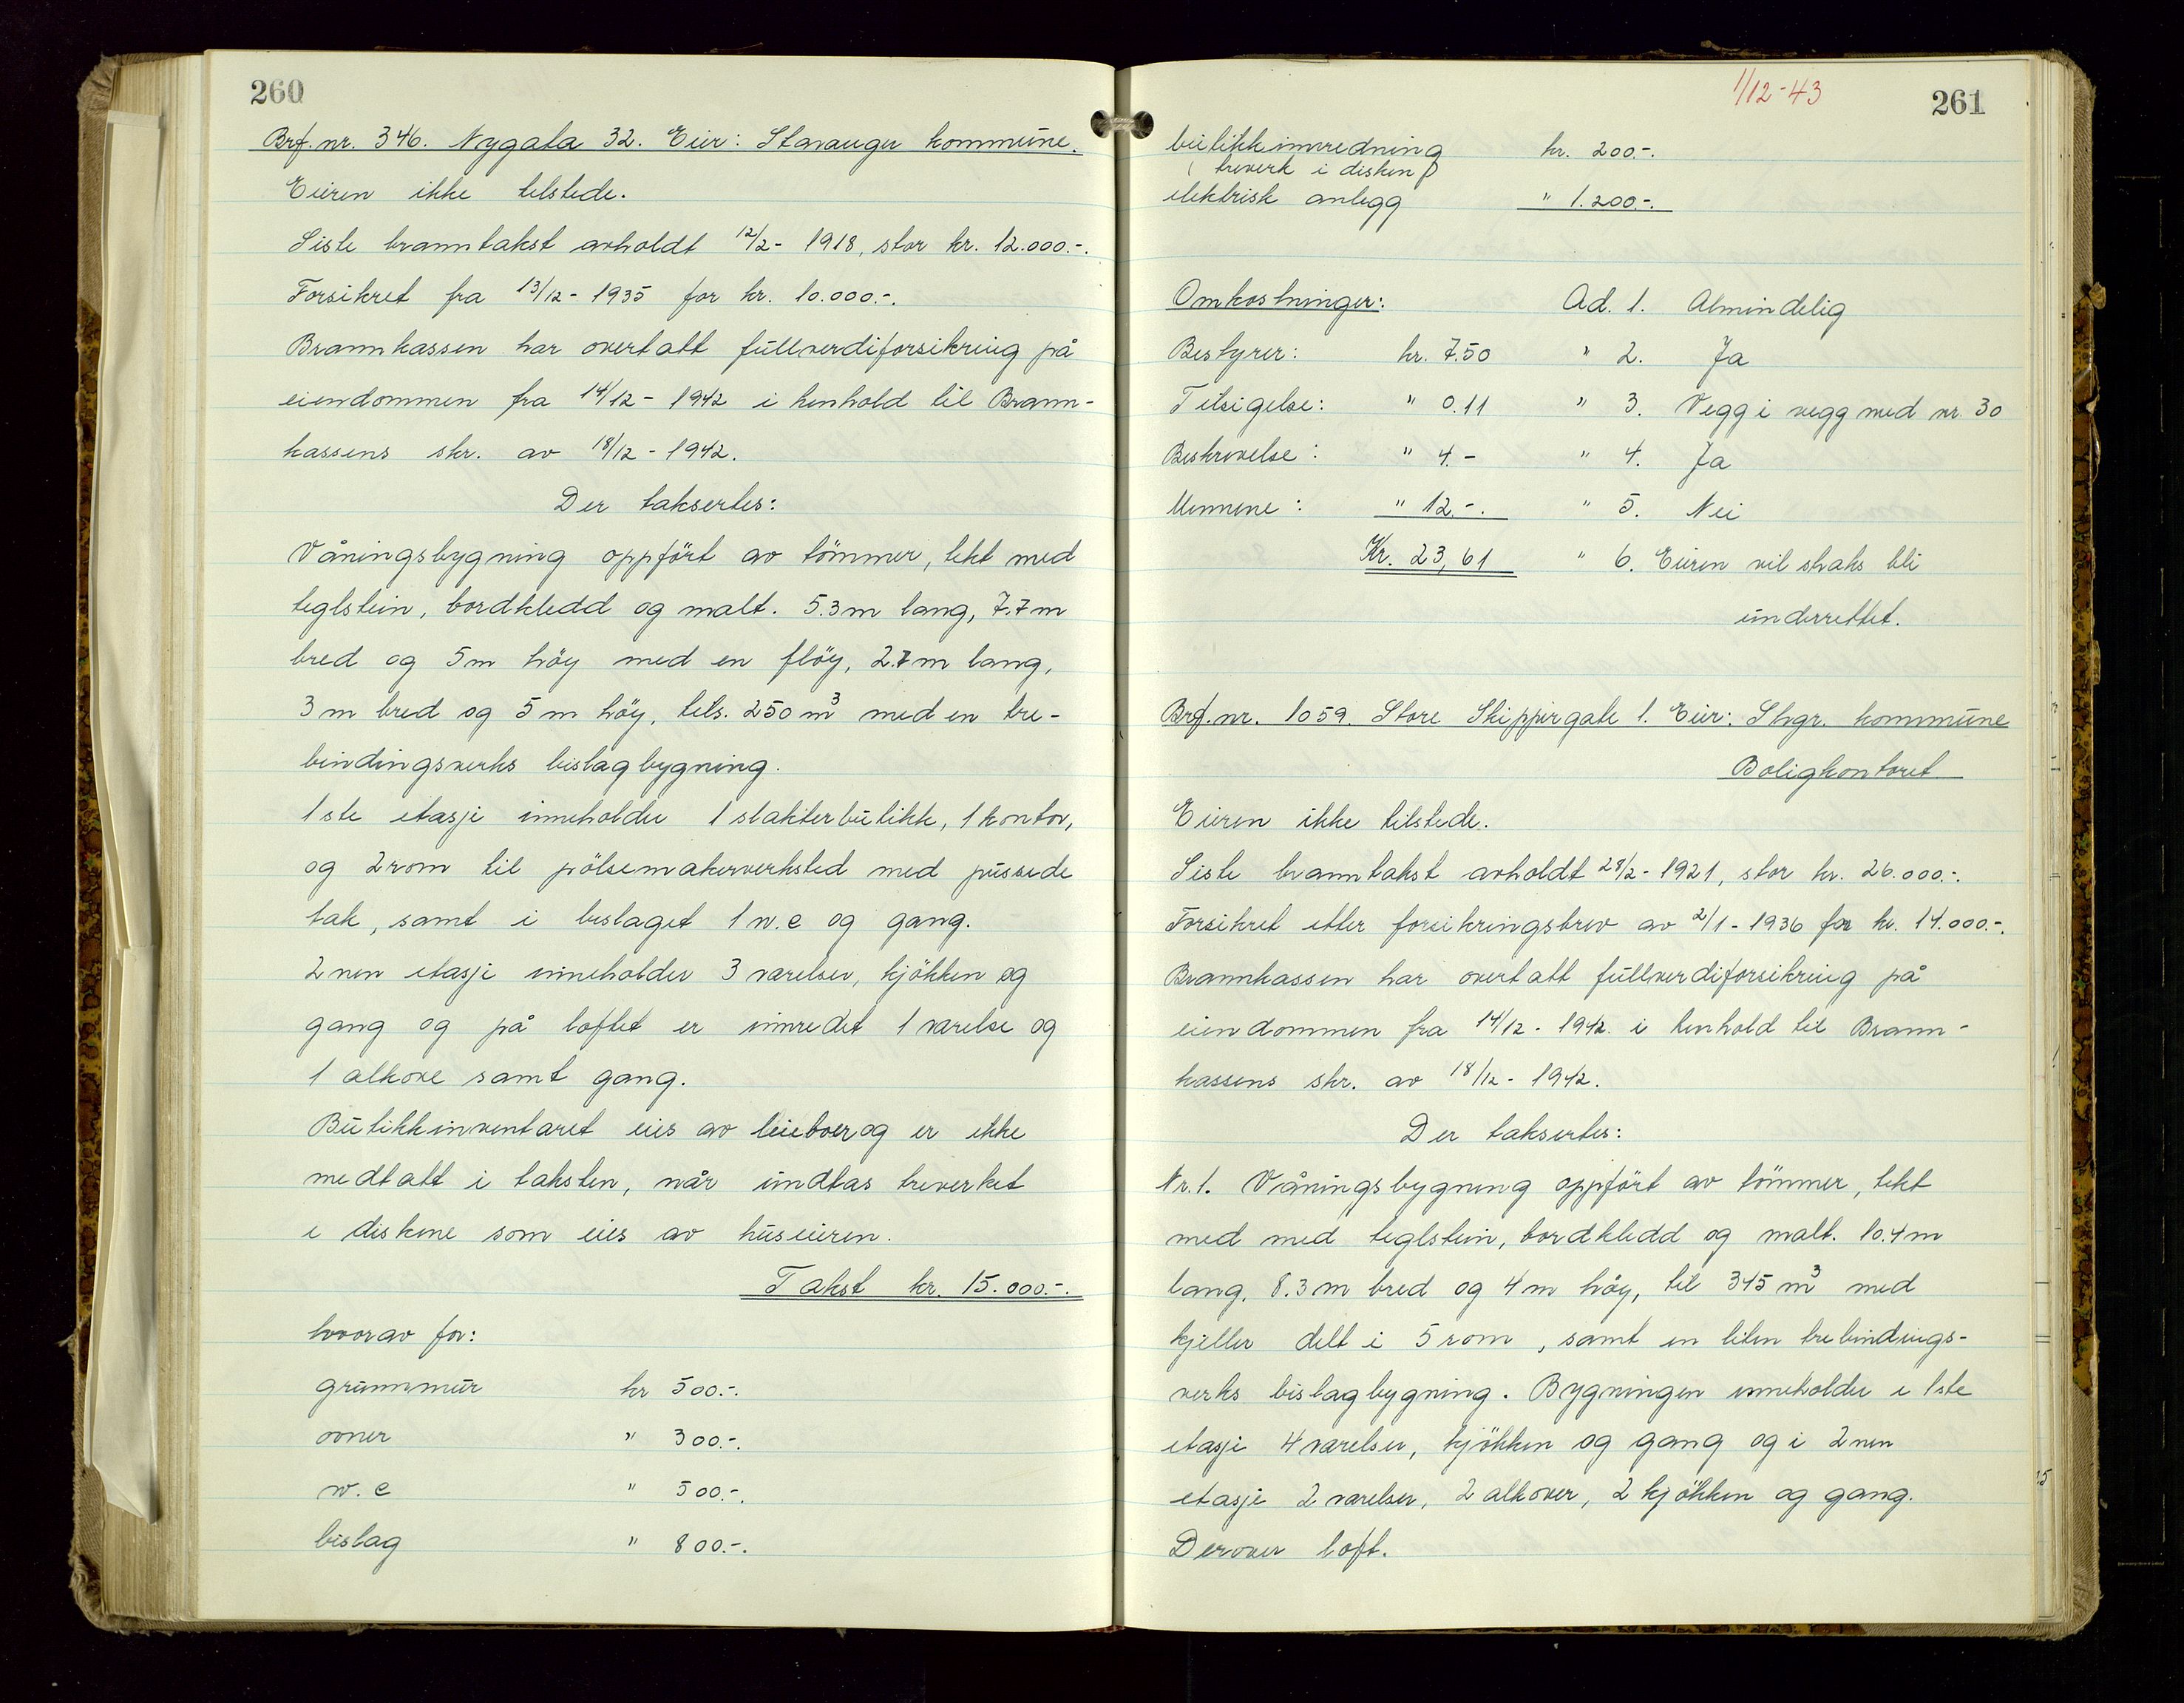 260
Brf. nr. 346. Nygata 32. Eier: Stavanger kommune.
Eieren ikke tilstede.
Siste branntakst avholdt 12/2 - 1918, stor kr. 12.000.-.
Forsikret fra 13/12 - 1935 for kr. 10.000.-.
Brannkassen har overtatt fullverdiforsikring på
eiendommen fra 14/12 - 1942 i henhold til Brann-
kassens skr. av 18/12 - 1942.
Der taksertes:
Våningsbygning oppført av tömmer, tekt med
teglstein, bordkledd og malt. 5.3 m lang, 7.7 m
bred og 5 m höy med en flöy, 2.7 m lang,
3 m bred og 5 m höy, tils. 250 m³ med en tre-
bindingsverks bislagbygning.
1ste etasje inneholder 1 slakterbutikk, 1 kontor,
og 2 rom til pölsemakerverksted med pussede
tak, samt i bislaget 1 w.c og gang.
2nen etasje inneholder 3 værelser, kjökken og
gang og på loftet er innredet 1 værelse og
1 alkove samt gang.
Butikkinventaret eies av leieboer og er ikke
medtatt i taksten, når undtas treverket
i diskene som eies av huseieren.
Takst kr. 15.000.-.
hvorav for:
grunnmur kr 500.-.
ovner " 300.-.
w.c " 500.-.
bislag " 800.-.
1/12-43
261
butikkinnredning kr. 200.-.
( treverk i disken )
elektrisk anlegg " 1.200.-.
Omkostninger: Ad. 1. Almindelig
Bestyrer: kr. 7.50 " 2. Ja
Tilsigelse: " 0.11 " 3. Vegg i vegg med nr. 30
Beskrivelse: " 4.- " 4. Ja
Mennene: " 12.-. " 5. Nei
Kr. 23,61 " 6. Eieren vil straks bli
underrettet.
Brf. nr. 1059. Store Skippergate 1. Eier: Stvgr. kommune
Boligkontoret
Eieren ikke tilstede.
Siste branntakst avholdt 28/2 - 1921, stor kr. 26.000.-.
Forsikret etter forsikringsbrev av 2/1 - 1936 for kr. 14.000.-.
Brannkassen har overtatt fullverdiforsikring på
eiendommen fra 14/12 - 1942. i henhold til Brann-
kassens skr. av 18/12 - 1942.
Der taksertes:
Nr. 1. Våningsbygning oppfört av tömmer, tekt
med med teglstein, bordkledd og malt. 10.4 m
lang, 8.3 m bred og 4 m höy, til 345 m³ med
kjeller delt i 5 rom, samt en liten trebindings-
verks bislagbygning. Bygningen inneholder i 1ste
etasje 4 værelser, kjökken og gang og i 2nen
etasje 2 værelser, 2 alkover, 2 kjökken og gang.
Derover loft.